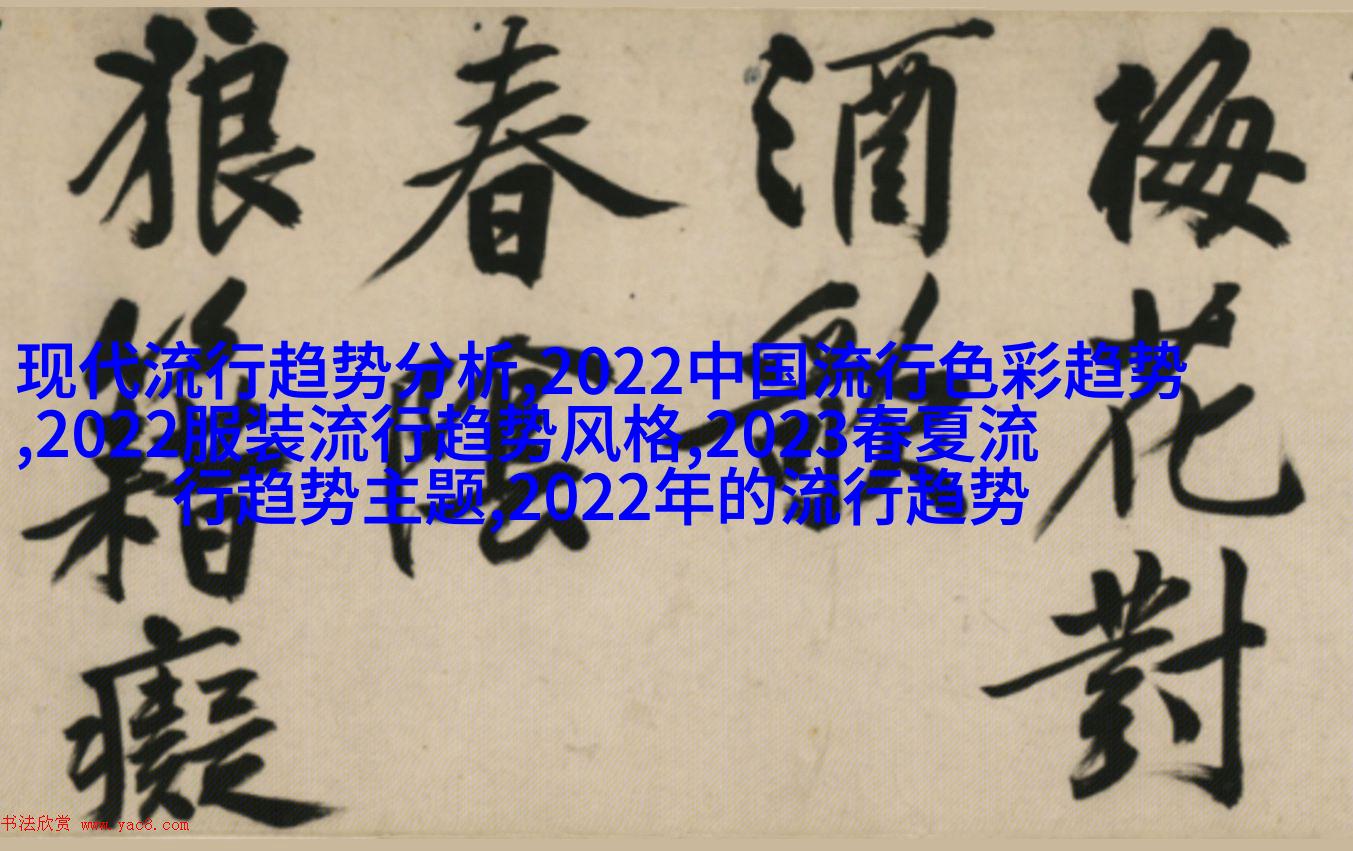 梅花對
酒
春陰
狼籍癡
现代流行趋势分析,2022中国流行色彩趋势
,2022服装流行趋势风格,2023春夏流
行趋势主题,2022年的流行趋势
书法欣赏 www.yac8.com